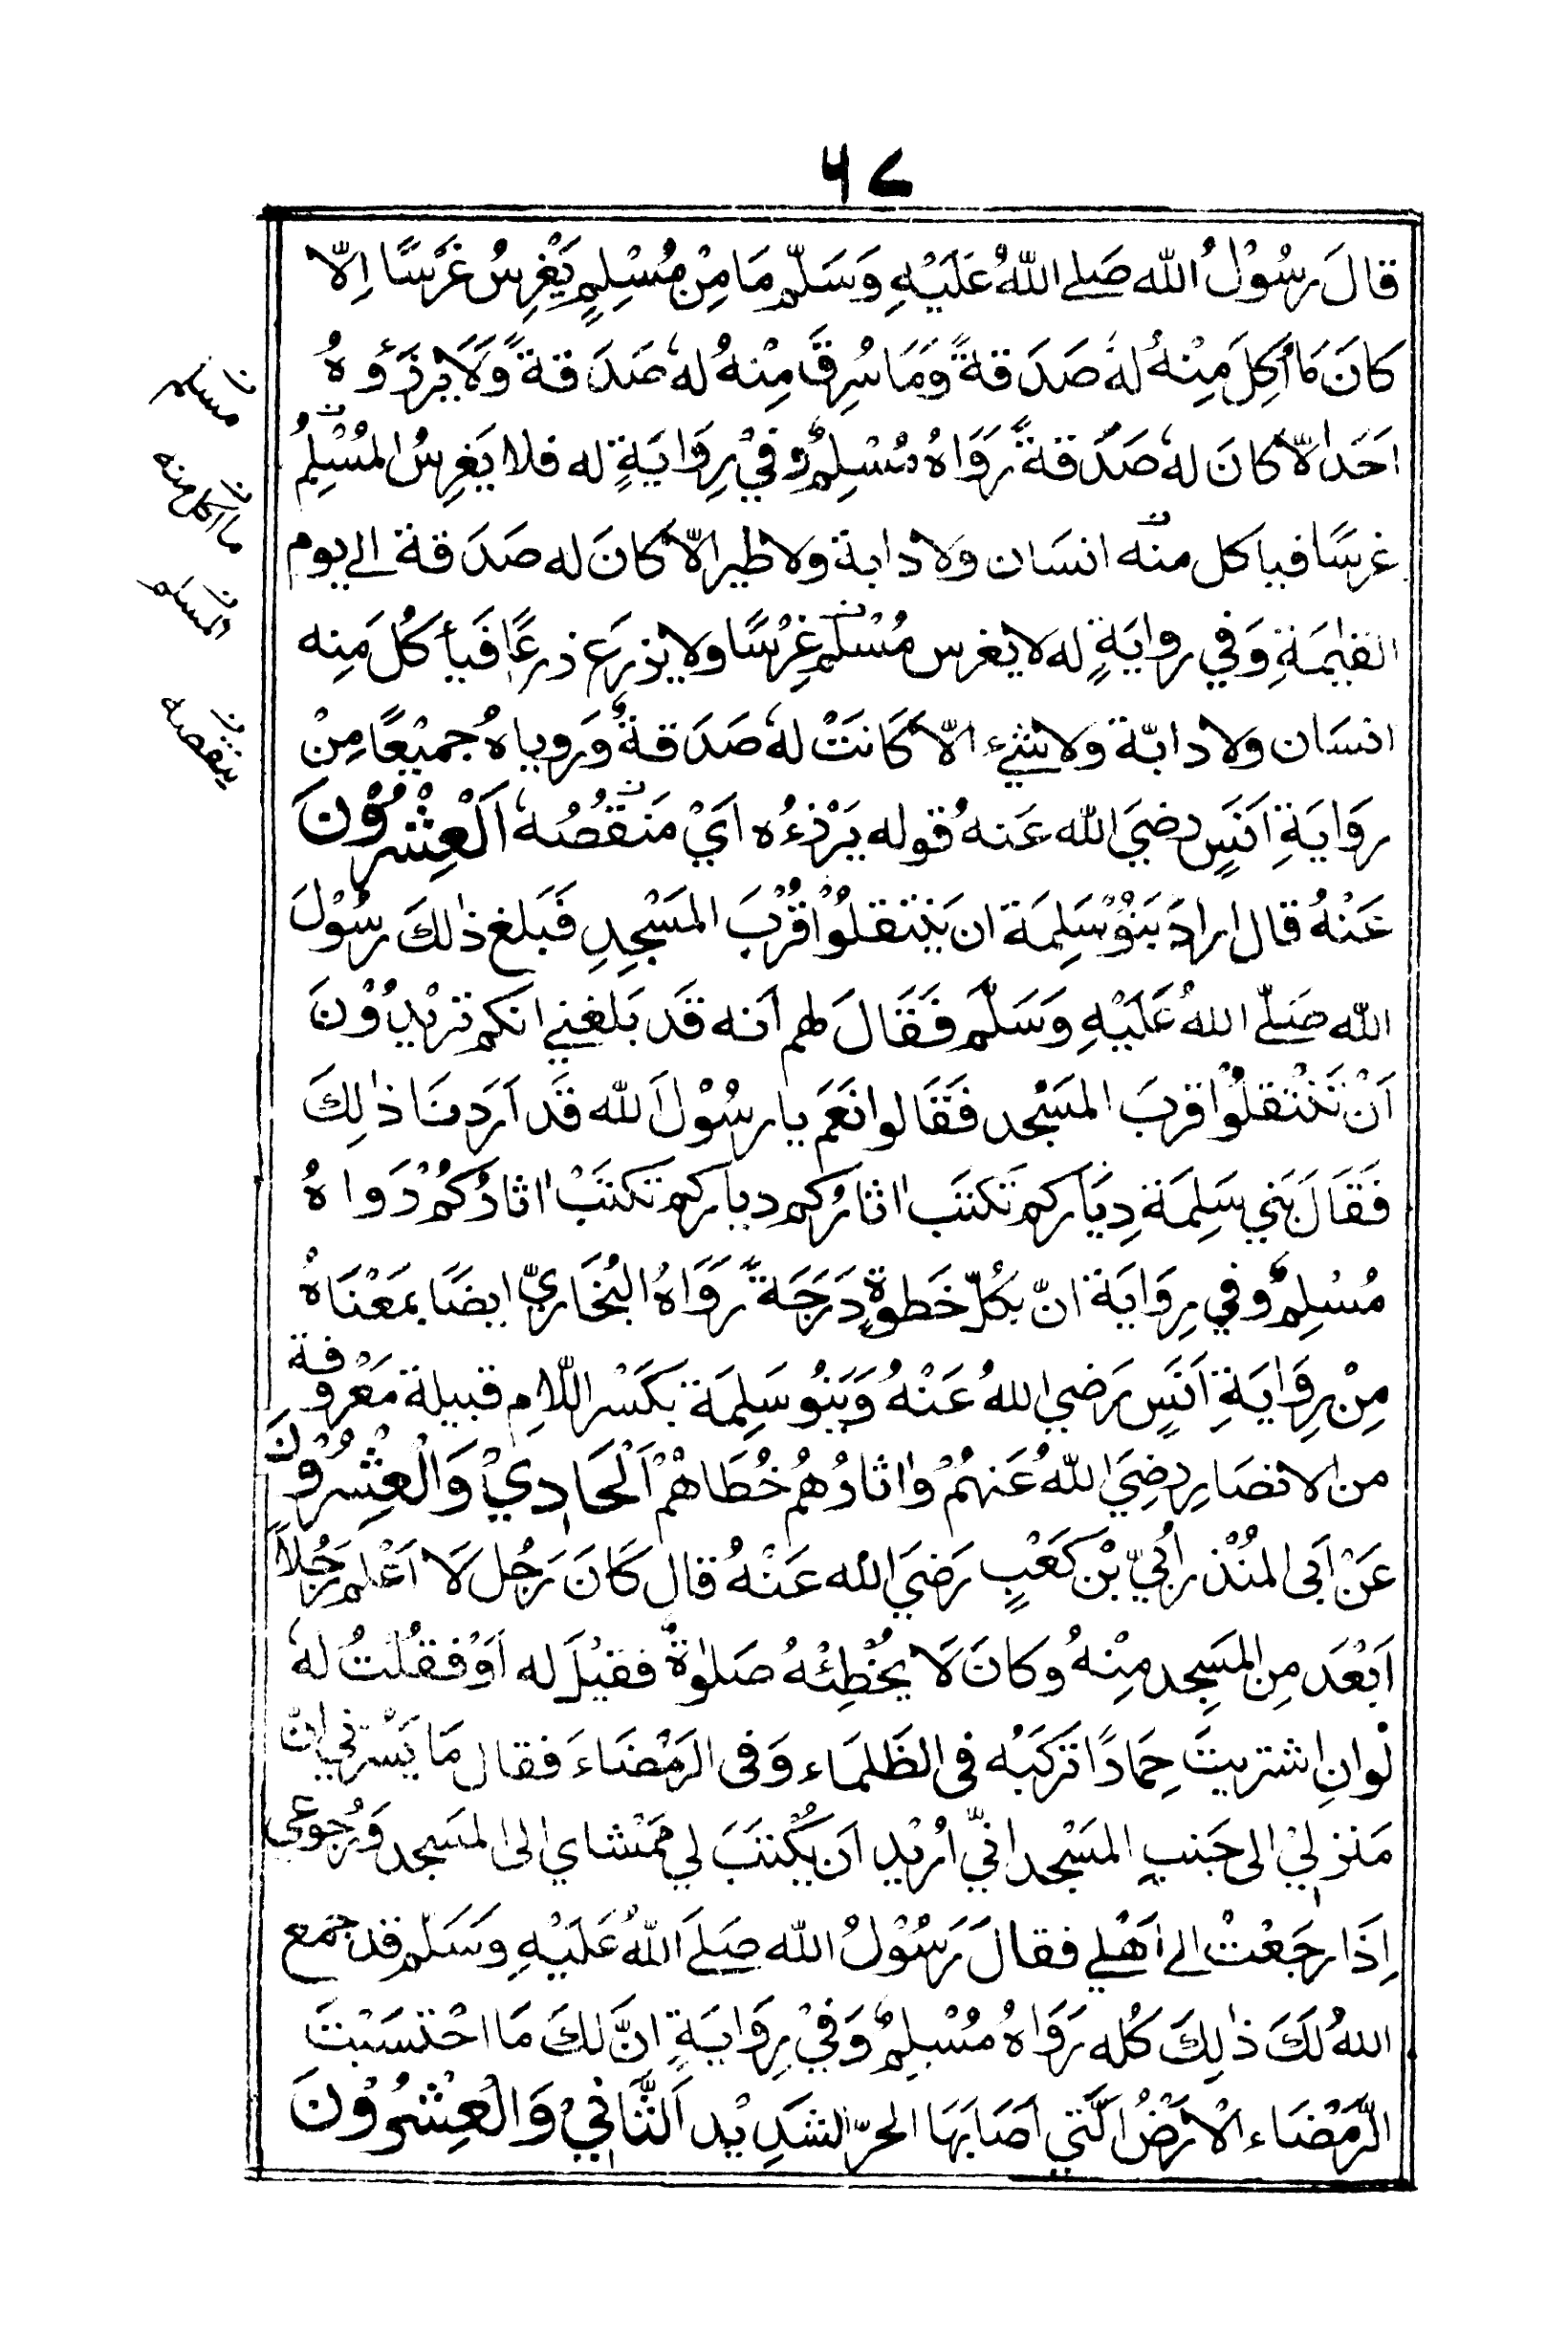 ٦٧
قَالَ رَسُوْلُ اللّٰه صَلى اللّٰهُ عَلَيْهِ وَسَلَّم مَا مِنْ مُسْلِمٍ يَغْرِسُ غَرْسًا اِلّا
كَانَ مَا أُكِلَ مِنْهُ لهٗ صَدَقةً وَمَا سُرِقَ مِنْهُ لهٗ صَدَقةً وَلَا يَرزَؤهُ
احَد اِلّا كانَ لهٗ صَدَقةً رَوَاهُ مُسْلِمٌ وَفيْ رِوَايَةٍ له فلا يَغرِسُ المُسْلِمُ
غرسًا فياكل منه انسَان ولا دابة ولا طير الّا كانَ له صَدَقة الى يوم
القيٰمَةِ وَفي روايَةٍ له لا يغرس مُسْلم غِرْسًا ولا يذرَع ذرعًا فَيأكُلَ مِنه
انسَان ولا دابّة ولا شيء الّا كَانَتْ لهٗ صَدَقةً وَروياهُ جميْعًا مِنْ
رِوَايَةِ اَنَسٍ رضيَ اللّٰه عَنهُ قوله يَرْذءُه اَيْ مَنقُصُهٗ اَلْعِشْرُوْنَ
عَنْهُ قال اراد بَنوْ سَلِمَة ان يَنتقلُوْا قُرْبَ المَسْجِدِ فَبَلغ ذٰلكَ رسُوْلَ
اللّٰه صَلّى اللّٰهُ عَلَيْهِ وَسَلّم فَقَالَ لهم اَنه قَد بَلغني انكم تريْدُوْنَ
اَنْ تَنْتقلُوْا قربَ المَسْجد فَقَالوا نَعَم يا رسُوْل اَللّٰه قَد اَرَدنَا ذٰلِكَ
فَقَالَ بَني سَلِمَة دِيَاركم تَكتَب اٰثارُكم دياركم تَكتَبْ اٰثادُكُمْ دَواهُ
مُسْلِمٌ وَفي رِوَايَة انّ بكُلّ خَطوةٍ دَرَجَةً رَوَاهُ البُخَارِيّ ايضًا بمَعْنَاهُ
مِنْ رِوَايَةِ اَنَسٍ رَضي اللّٰهُ عَنْهُ وَبَنُو سَلِمَة بكَسْر اللّامِ قبيلة مَعْرُوفة
من الانصَارِ رضِيَ اللّٰهُ عَنهُمْ وَاٰثادُهُم خُطَاهُمْ اَلْحَادِيْ وَالْعِشْرُوْنَ
عَنْ اَبى المُنْذر اُبيّ بْن كَعْبٍ رَضيَ اللّٰه عَنْهُ قال كَانَ رَجُل لَا اَعْلم رَجُلاً
اَبْعَد مِن المَسجِد مِنْهُ وكانَ لَا يخُطِئْهُ صَلوٰةٌ فقيْلَ له اَوْ فقُلْتُ لهٗ
لَوان اِشتريتَ حِمَادًا تَركَبُه فى الظَلمَاء وَفى الرَمْضَاءَ فقال مَا يَسُرّني انّ
مَنزليْ الى جَنبِ المَسْجد انيّ اُريْد اَن يُكْتبَ لي ممَشاي الى المسَجد وَرُجوعي
اِذَا رجَعْتُ الى اَهْلي فقالَ رَسُوْلُ اللّٰه صَلَى اَللّٰهُ عَلَيْهِ وَسَلّم قد جَمع
اللّٰهُ لَكَ ذٰلِكَ كُله رَوَاهُ مُسْلِمٌ وَفيْ رِوَايَةٍ انَّ لكَ مَا احْتَسَبْتَ
الرَّمْضَاء الْارَضُ الَّتي اَصَابَهَا الحرّ الشدِيْد اَلثَّانِيْ وَالْعِشْرُوْنَ
مسلم
ما اكل منه
المسلم
ينقصه